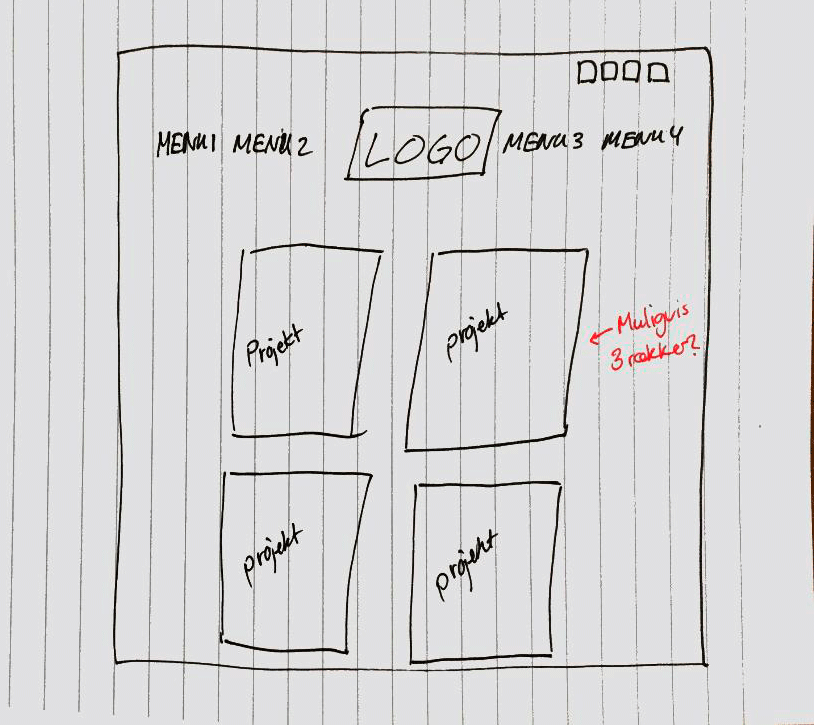 MENU1 MENU2 LOGO MENU3 MENU4
Projekt
projekt
← Muligvis
3 rækker?
projekt
projekt